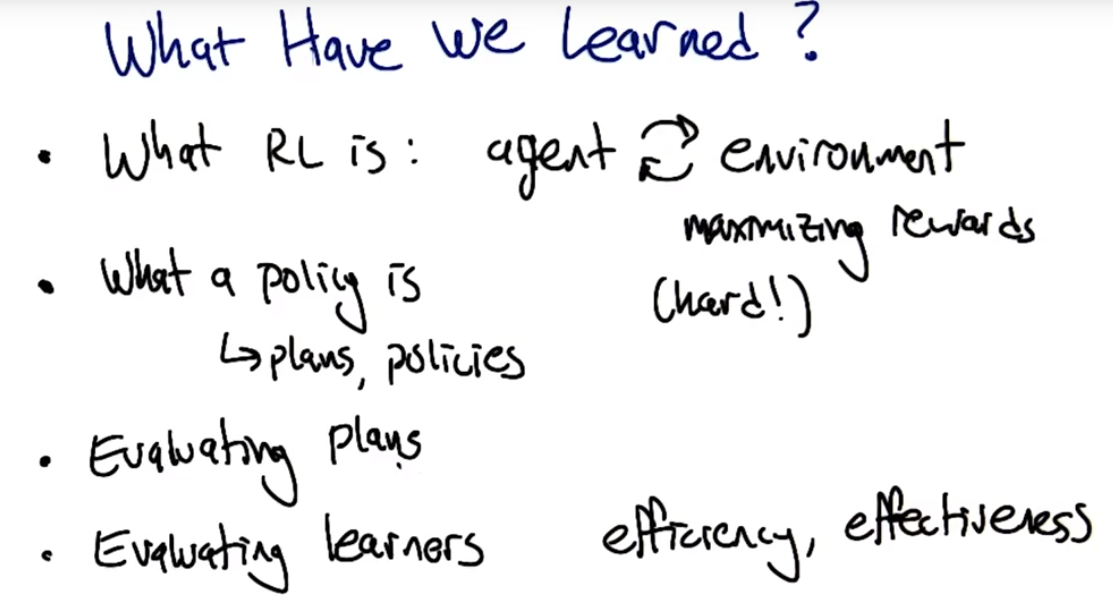 What Have We Learned?
• What RL is: agent environment
maximizing rewards
• What a policy is (hard!)
↳ plans, policies
• Evaluating plans
• Evaluating learners efficiency, effectiveness